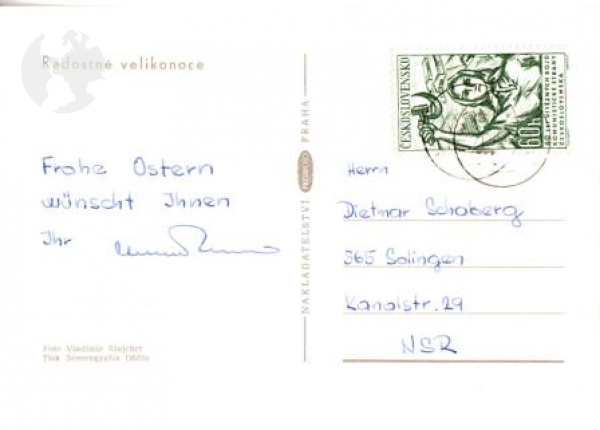 Radostné velikonoce
Frohe Ostern
wünscht Ihnen
Ihr
Foto Vladimír Šlajchrt
Tisk Severografia Děčín
NAKLADATELSTVÍ PRAHA
ČESKOSLOVENSKO
60h
KOMUNISTICKÉ STRANY
ČESKOSLOVENSKA
Herrn
Dietmar Schaberg
565 Solingen
Kanalstr. 29
NSR